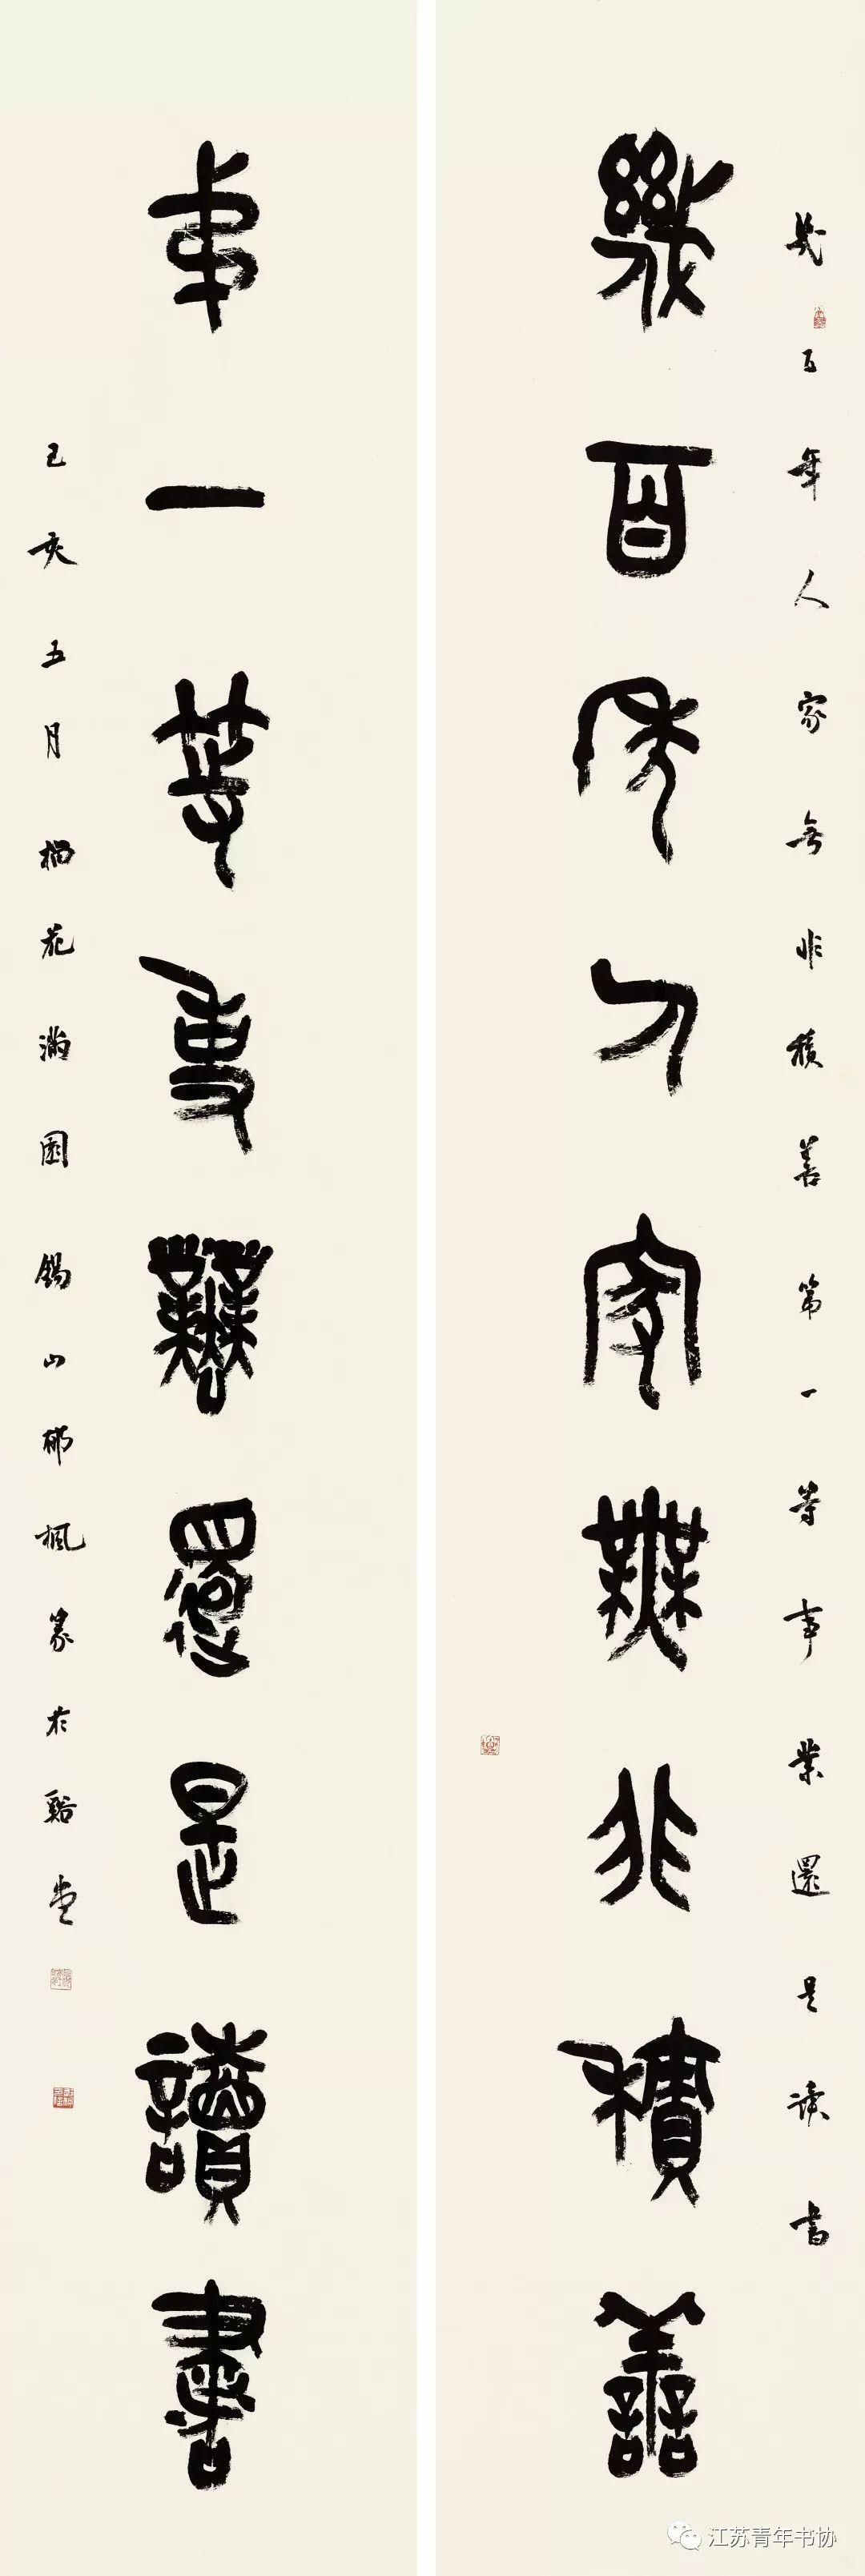 幾百年人家無非積善第一等事業還是讀書
幾百年人家無非積善
弟一等事業還是讀書
己亥五月榴花滿園錫山楓篆於谿堂
江苏青年书协